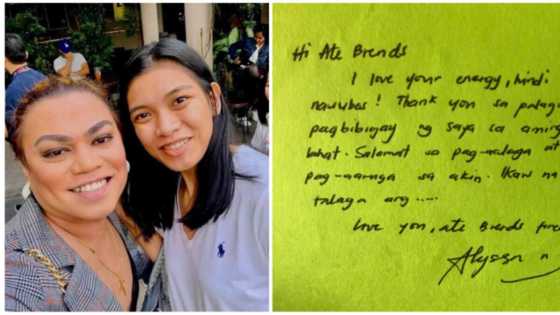 Hi Ate Brends
I love your energy, hindi
nauubos! Thank you sa
pagbibigay ng saya sa
lahat. Salamat sa pag-aalaga at
pag-aaruga sa akin. Ikaw na
talaga ang .....
Love you, ate Brends
Alyssa